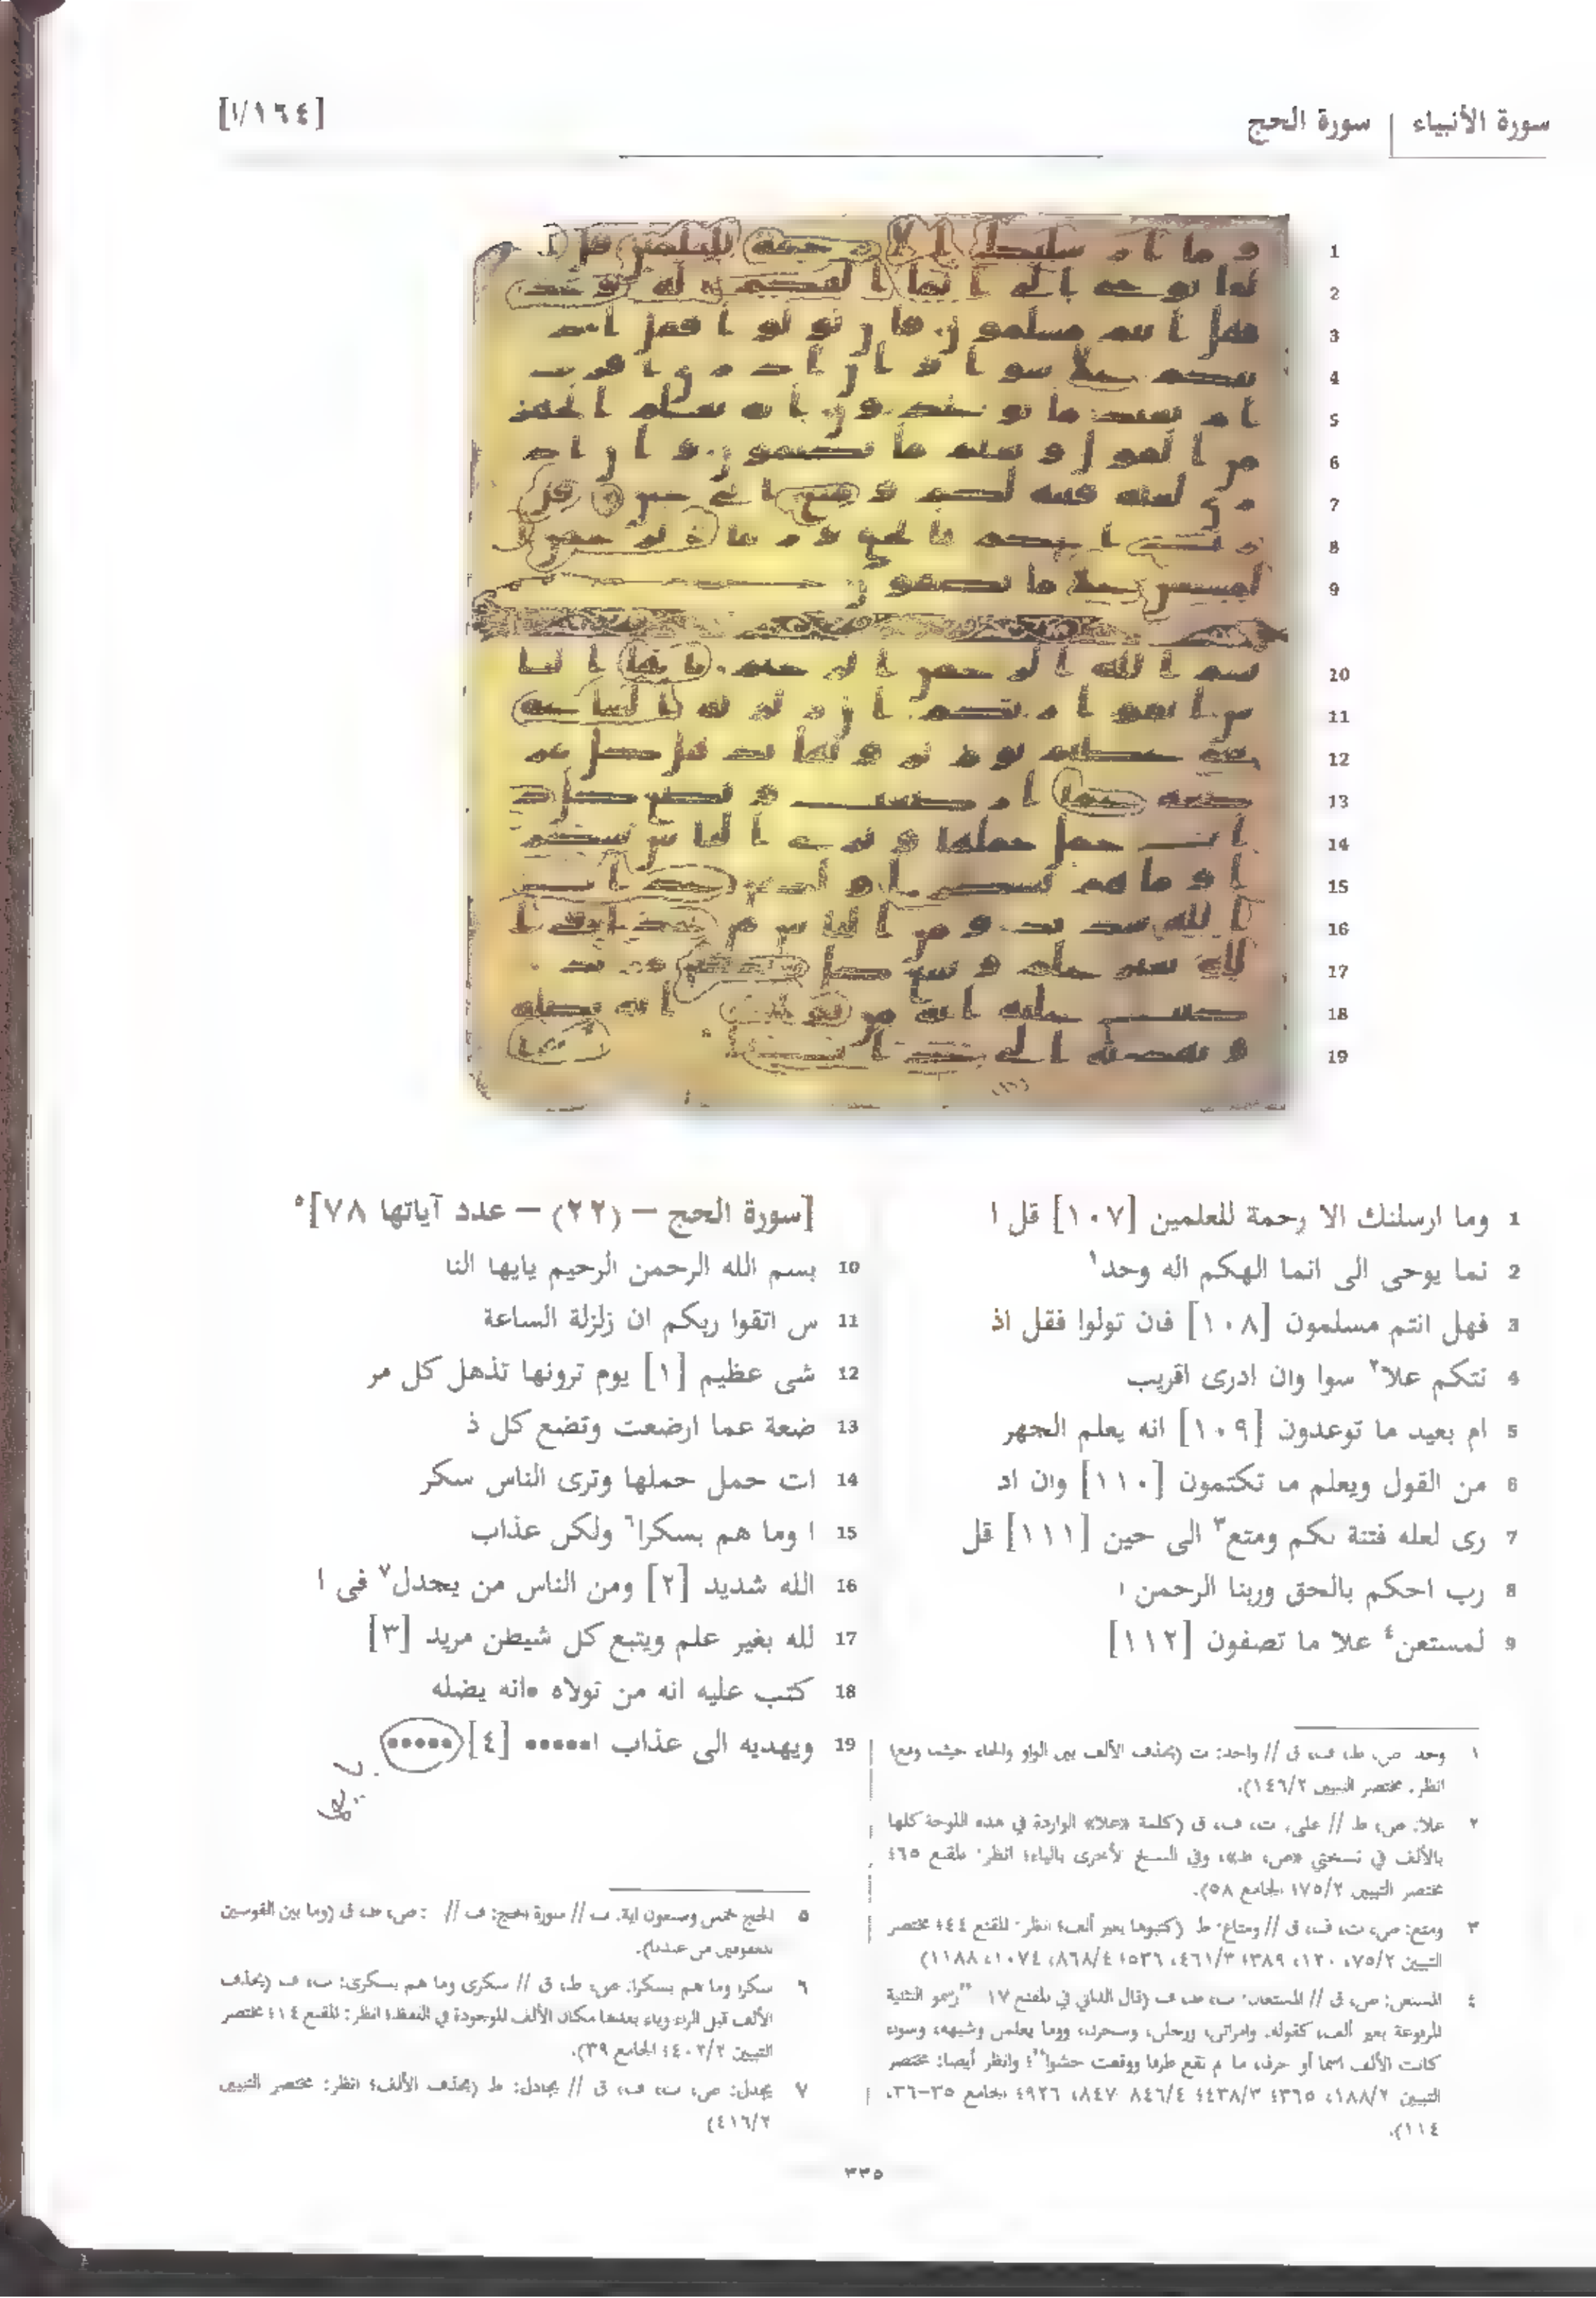 سورة الأنبياء | سورة الحج
[١٦٤/ا]
1 وما ارسلنك الا رحمة للعلمين [١٠٧] قل ا
2 نما يوحى الى انما الهكم اله وحد١
3 فهل انتم مسلمون [١٠٨] فان تولوا فقل اذ
4 نتكم علا٢ سوا وان ادرى اقريب
5 ام بعيد ما توعدون [١٠٩] انه يعلم الجهر
6 من القول ويعلم ما تكتمون [١١٠] وان اد
7 رى لعله فتنة لكم ومتع٣ الى حين [١١١] قل
8 رب احكم بالحق وربنا الرحمن ا
9 لمستعن٤ علا ما تصفون [١١٢]
[سورة الحج – (٢٢) – عدد آياتها ٧٨]٥
10 بسم الله الرحمن الرحيم يايها النا
11 س اتقوا ربكم ان زلزلة الساعة
12 شى عظيم [١] يوم ترونها تذهل كل مر
13 ضعة عما ارضعت وتضع كل ذ
14 ات حمل حملها وترى الناس سكر
15 ا وما هم بسكرا٦ ولكن عذاب
16 الله شديد [٢] ومن الناس من يجدل٧ فى ا
17 لله بغير علم ويتبع كل شيطن مريد [٣]
18 كتب عليه انه من تولاه فانه يضله
19 ويهديه الى عذاب ا••••• [٤] •••••
١ وحد: ص، ط، ف، ق // واحد: ت (بحذف الألف بين الواو والحاء حيثما وقع؛
انظر: مختصر التبيين ١٤٦/٢).
٢ علا: ص، ط // على: ت، ف، ق (كلمة «علا» الواردة في هذه اللوحة كلها
بالألف في نسختي «ص، ط»، وفي النسخ الأخرى بالياء؛ انظر: المقنع ٦٥؛
مختصر التبيين ٧٥/٢؛ الجامع ٥٨).
٣ ومتع: ص، ت، ف، ق // ومتاع: ط (كتبوها بغير ألف؛ انظر: المقنع ٤٤؛ مختصر
التبيين ٧٥/٢، ١٢٠، ٣٨٩؛ ٤٦١/٣، ٥٣٦؛ ٨٦٨/٤، ١٠٧٤، ١١٨٨)
٤ المستعن: ص، ق // المستعان: ت، ط، ف (قال الداني في المقنع ١٧ "رسموا التثنية
المرفوعة بغير ألف، كقوله: وامراتن، ورجلن، وسحرن، وما يعلمن وشبهه، وسواء
كانت الألف اسما أو حرفا، ما لم تقع طرفا ووقعت حشوا"؛ وانظر أيضا: مختصر
التبيين ١٨٨/٢، ٣٦٥؛ ٤٣٨/٣؛ ٨٤٦/٤، ٨٤٧، ٩٢٦؛ الجامع ٣٥-٣٦،
١١٤).
٥ الحج خمس وسبعون اية: ت // سورة الحج: ف // : ص، ط، ق (وما بين القوسين
المعقوفين من عندنا).
٦ سكرا وما هم بسكرا: ص، ط، ق // سكرى وما هم بسكرى: ت، ف (بحذف
الألف قبل الراء وياء بعدها مكان الألف الموجودة في اللفظ؛ انظر: المقنع ١٤؛ مختصر
التبيين ٤٠٢/٢؛ الجامع ٣٩).
٧ يجدل: ص، ت، ف، ق // يجادل: ط (بحذف الألف؛ انظر: مختصر التبيين
٤١٦/٢)
٣٣٥